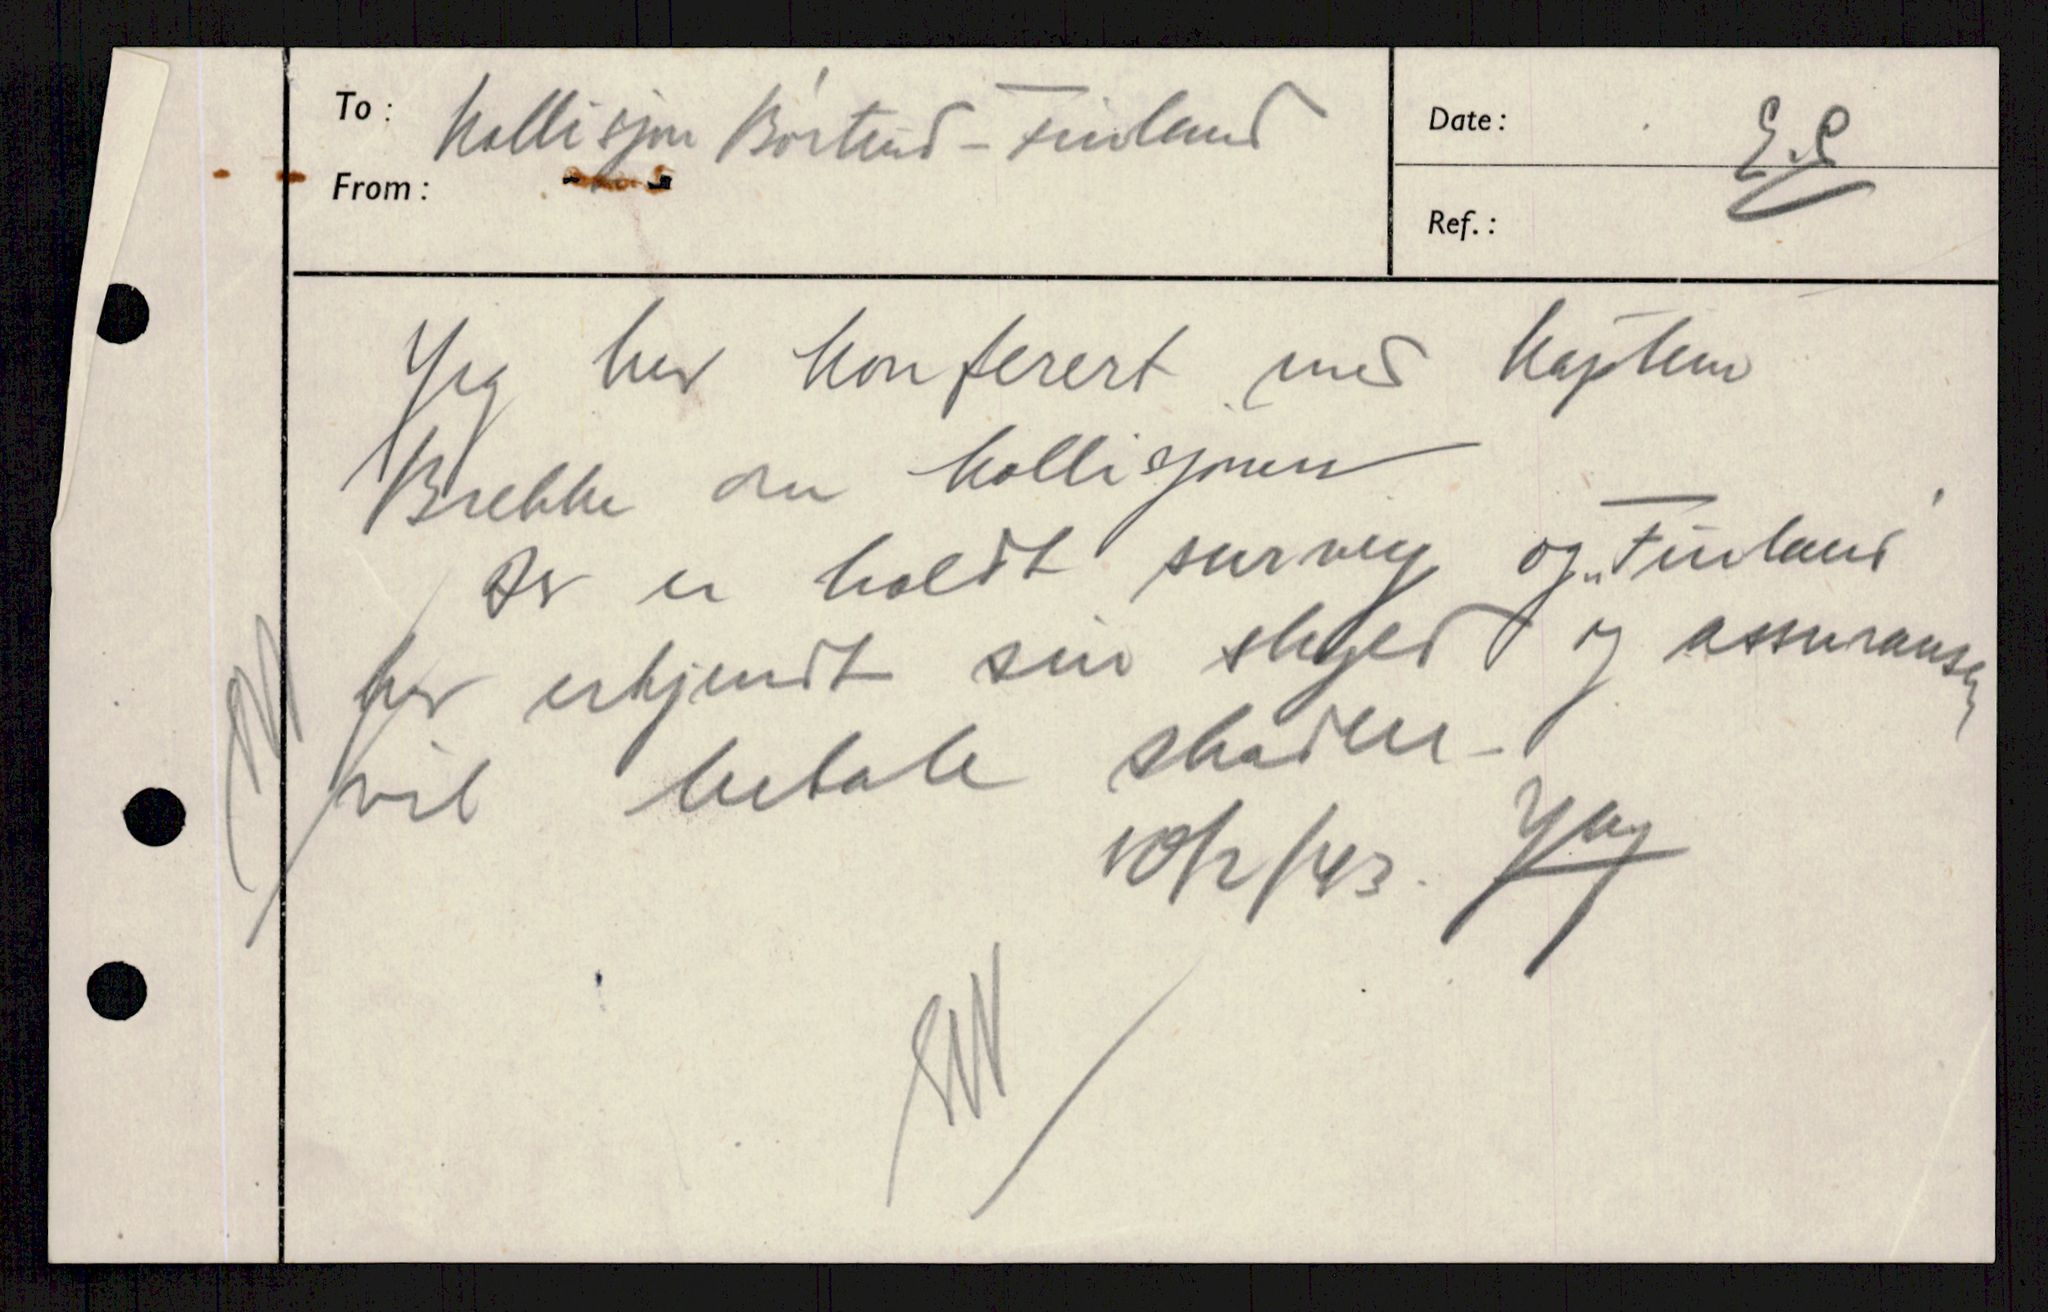 To: Kollisjon Børtind - Finland
From:
Date:
E.S
Ref.:
Jeg har konferert med kaptein
Brekke om kollisjonen
Der er holdt survey og „Finland"
har erkjendt sin skyld og assuransen
vil betale skaden -
10/2/43.